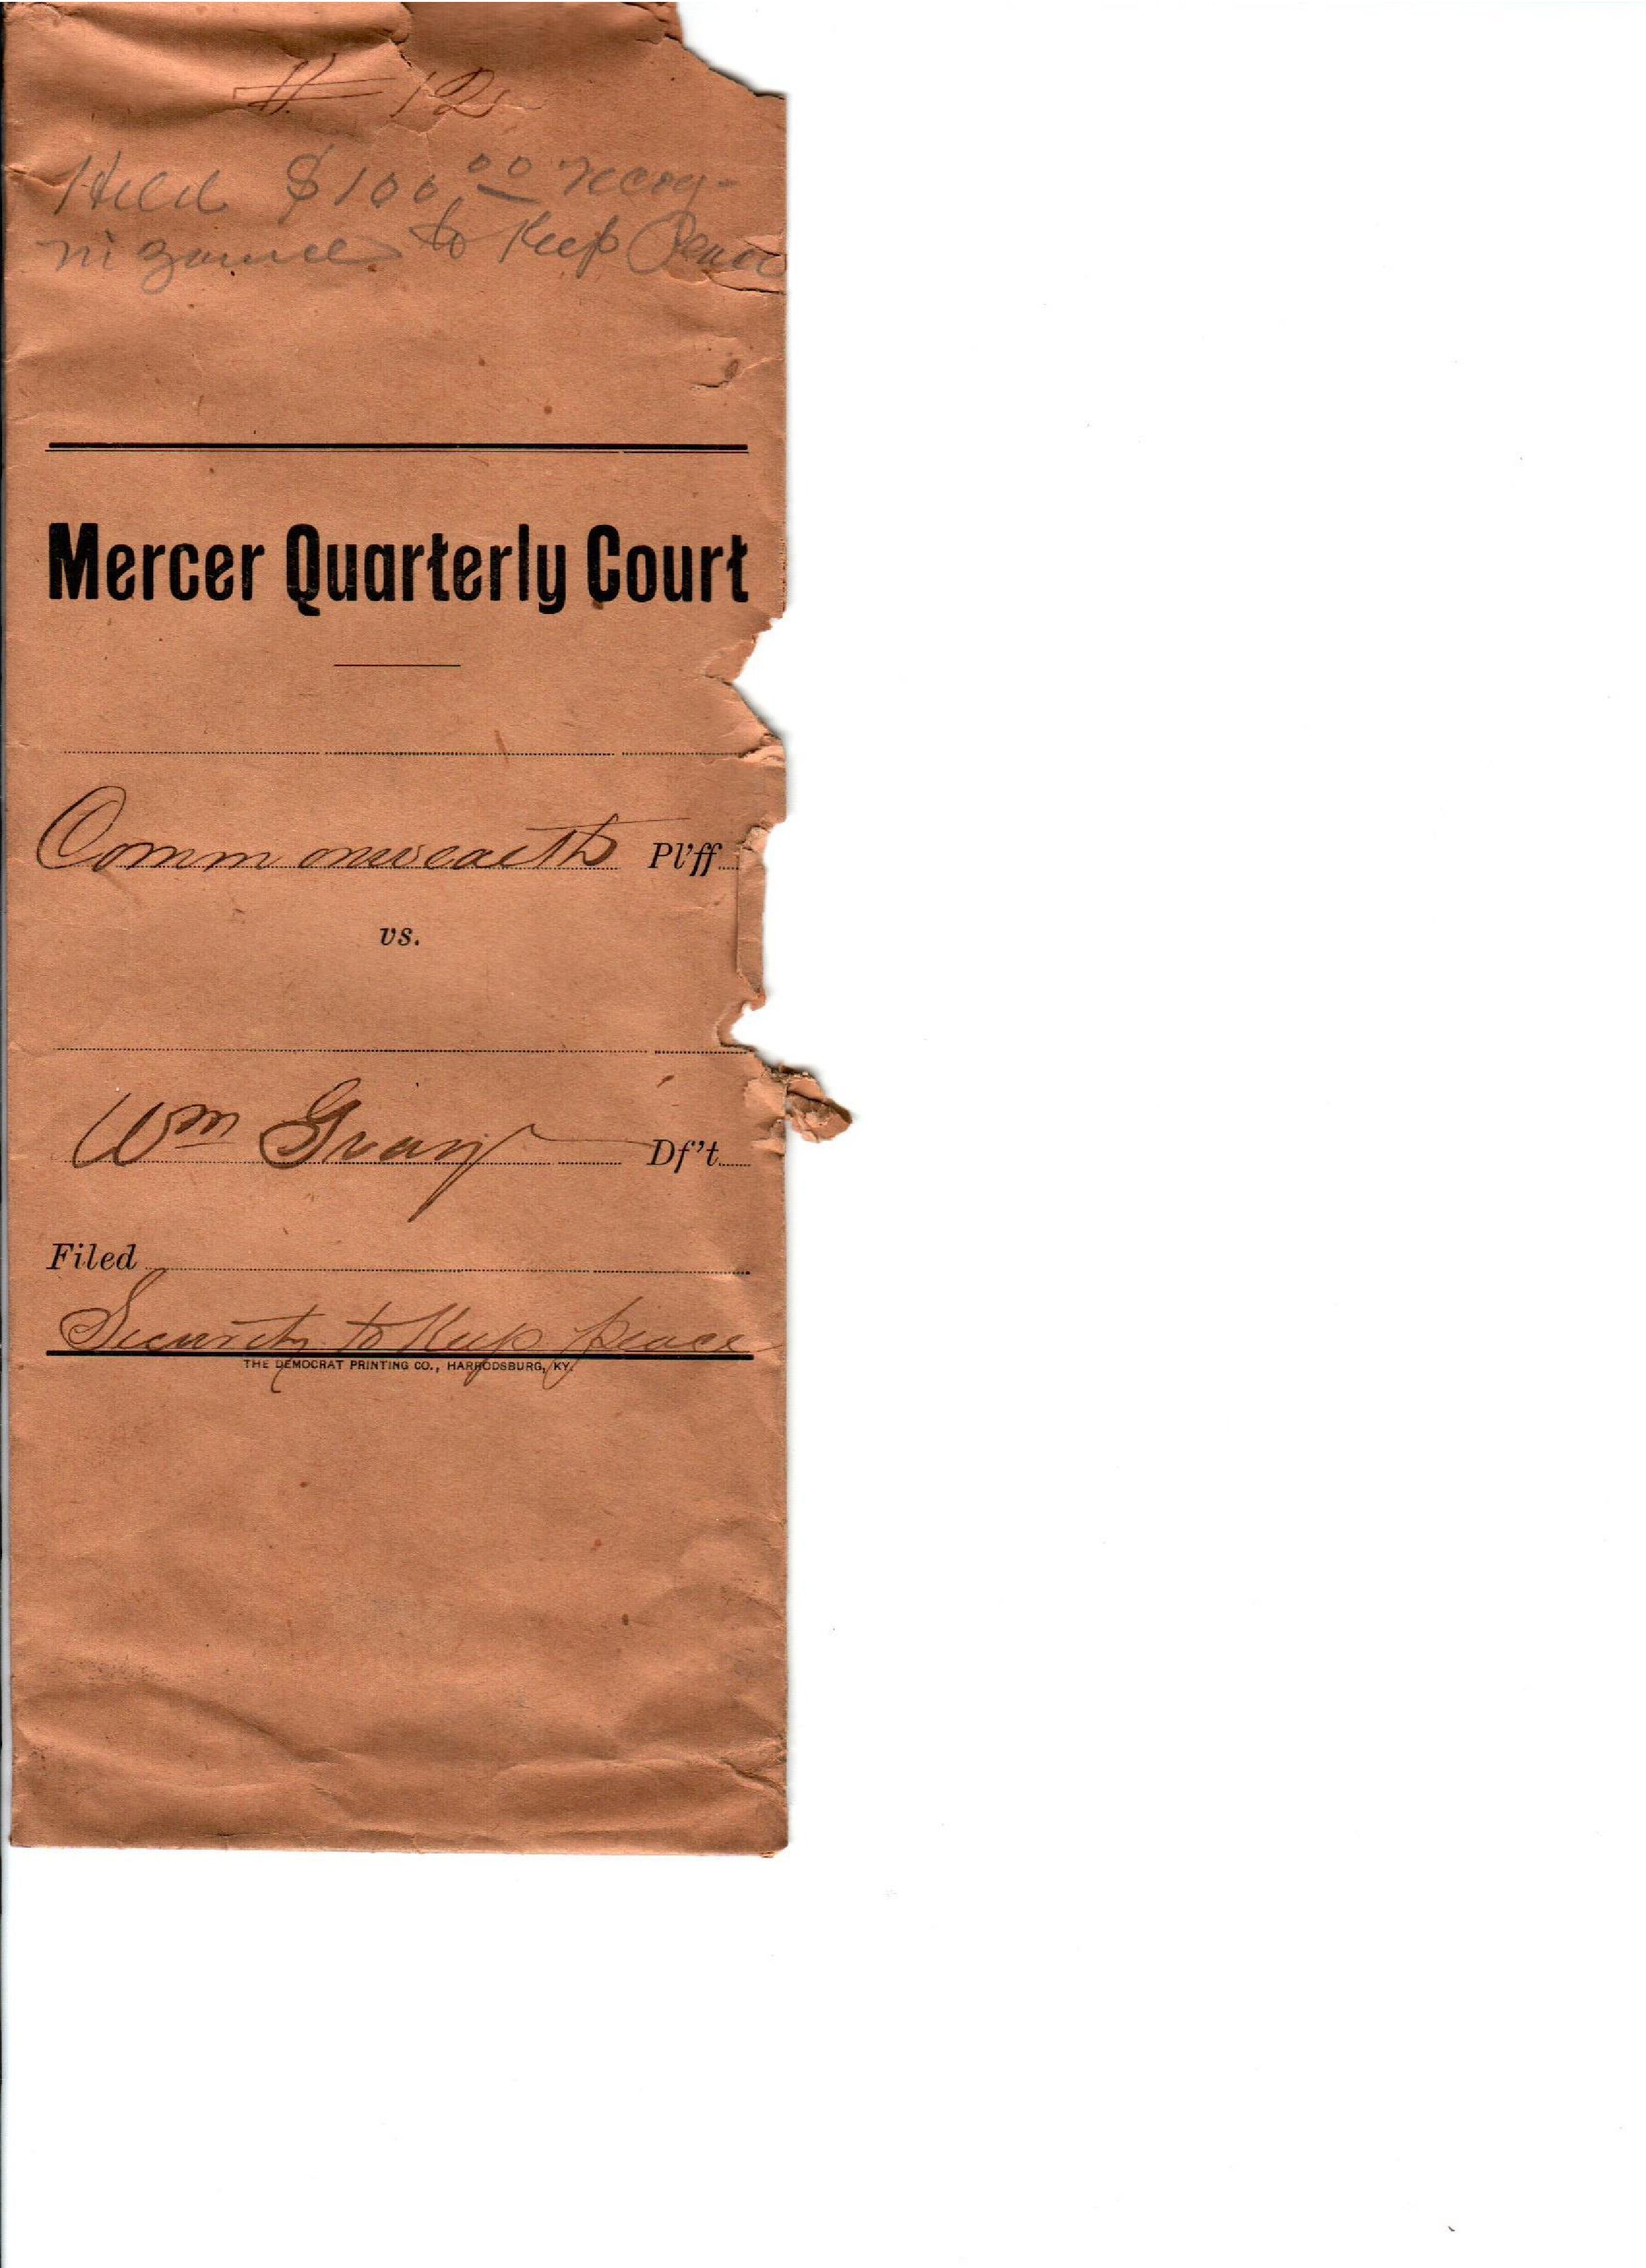 # 12
Held $100.00 recog-
nizance to Keep Peace
Mercer Quarterly Court
Commonwealth Pl'ff
vs.
Wm Gray Df't
Filed
Security to Keep peace
THE DEMOCRAT PRINTING CO., HARRODSBURG, KY.